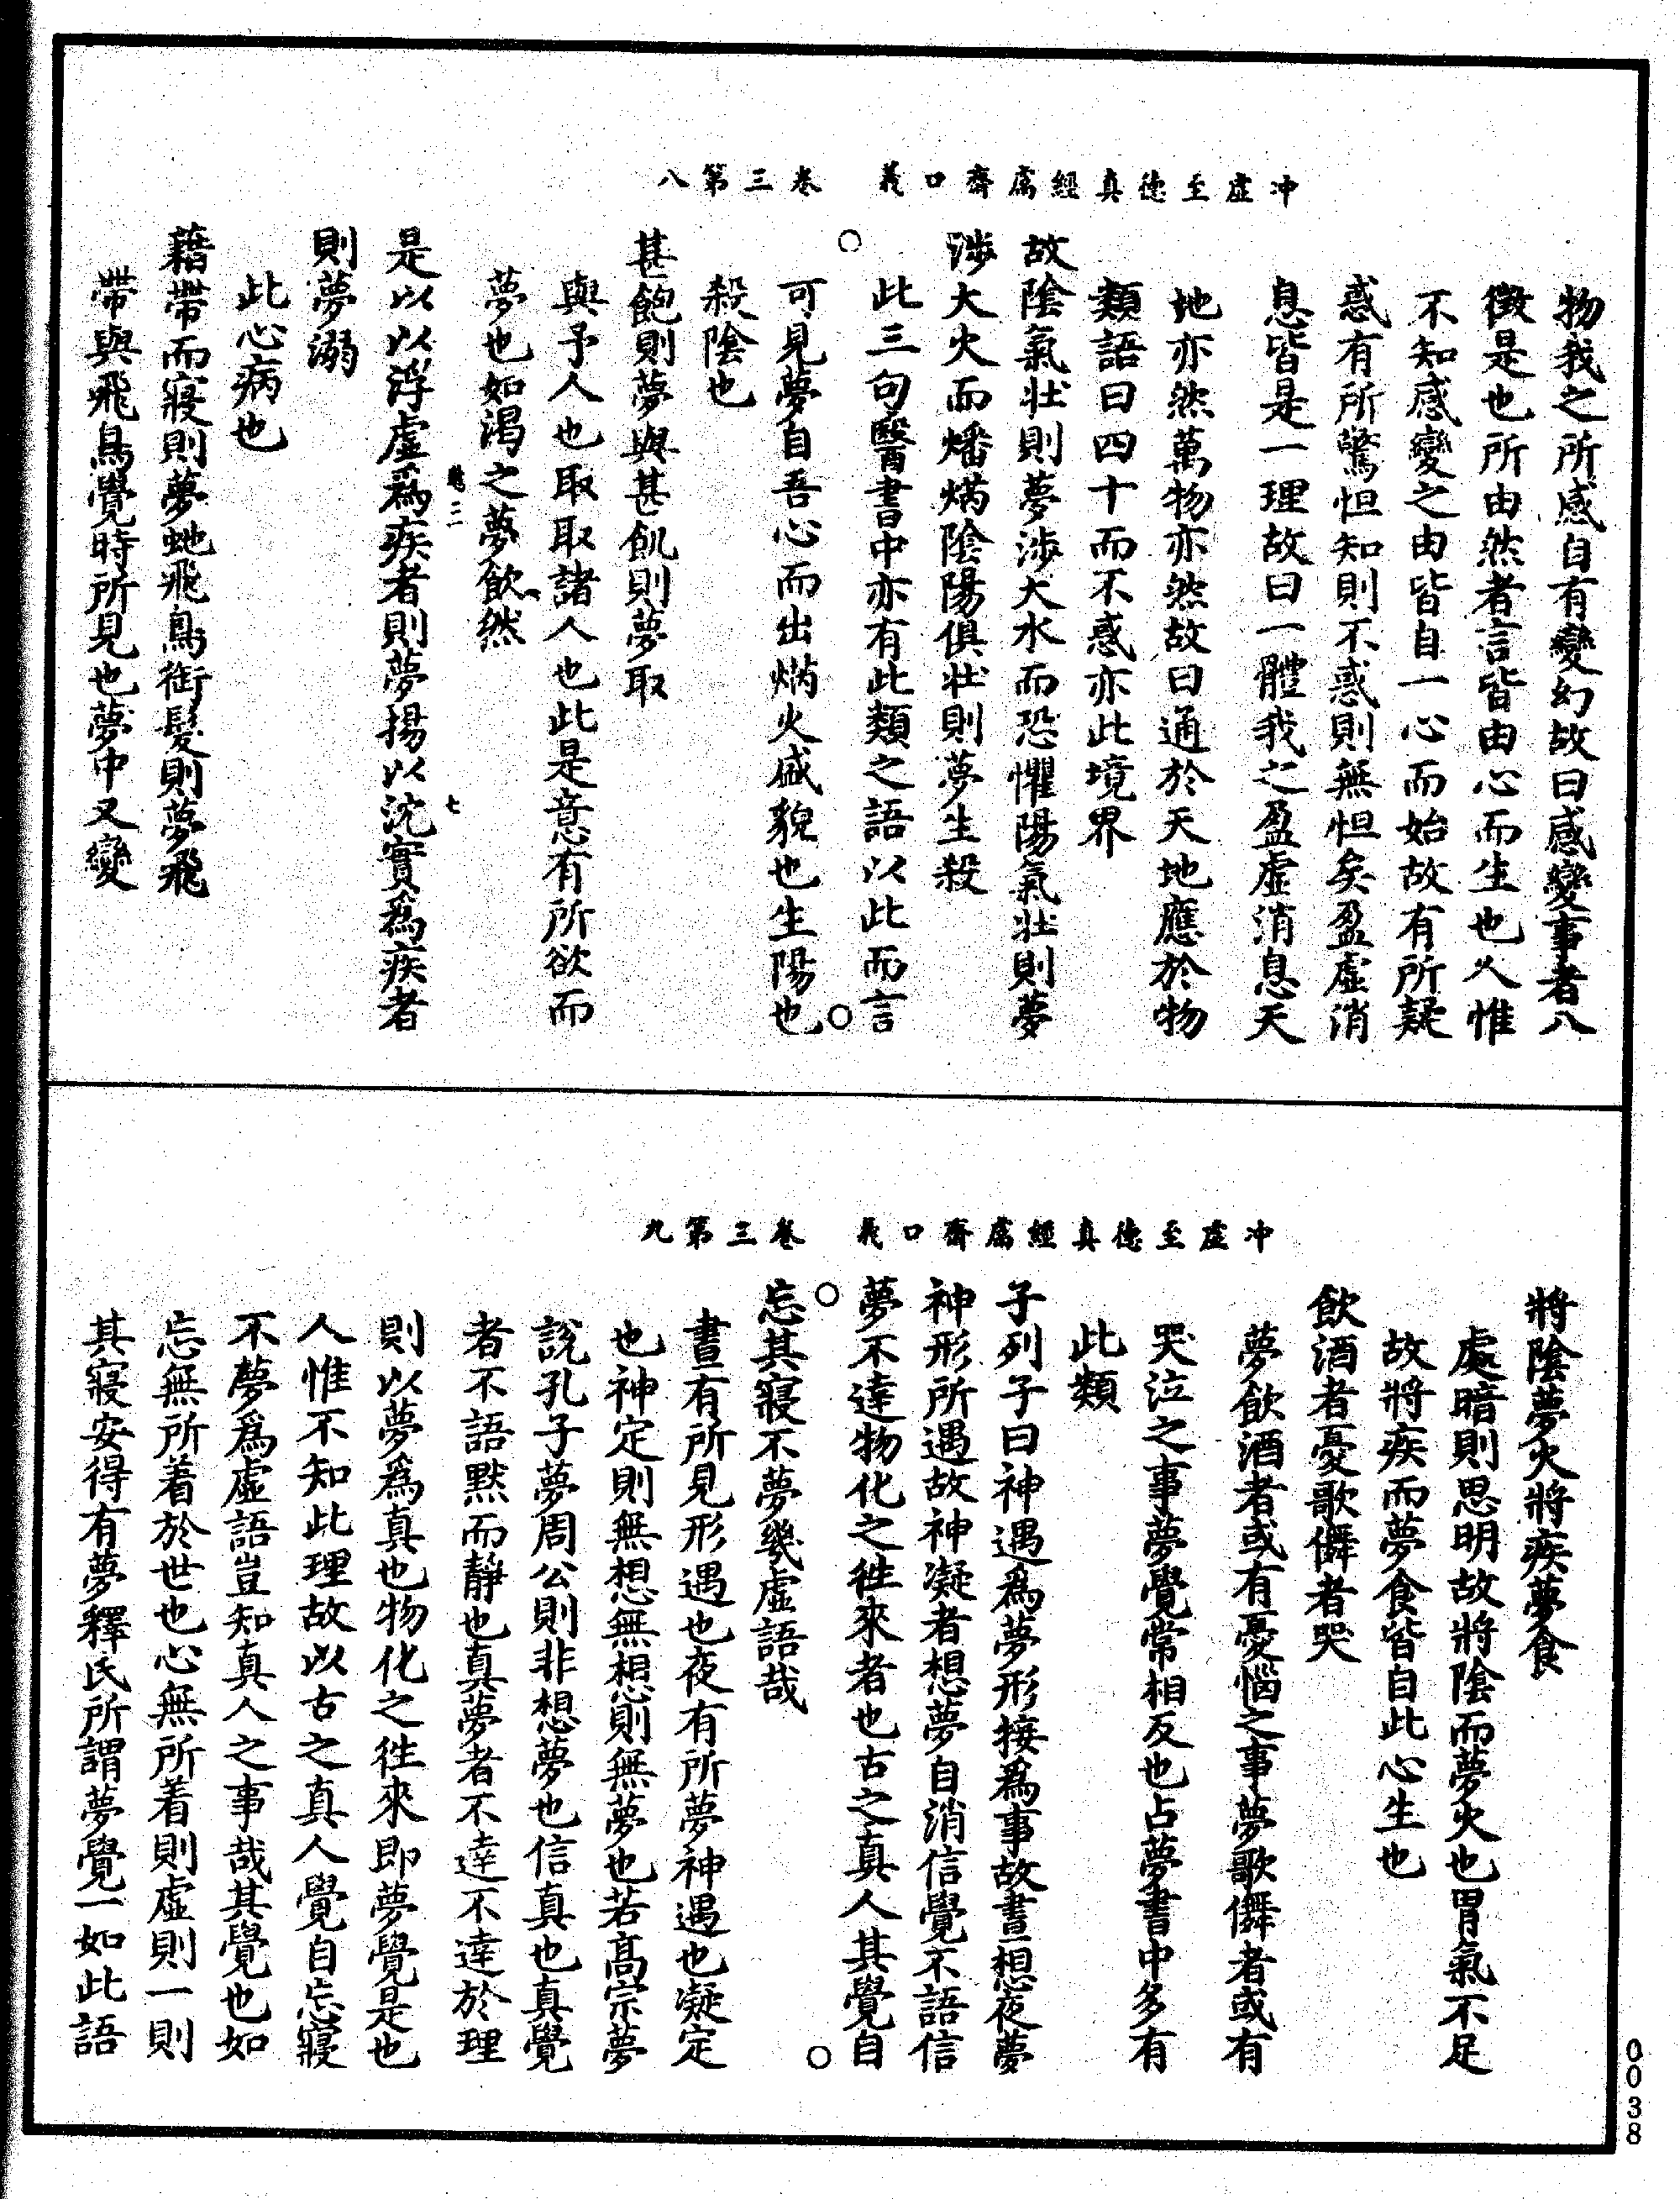 冲虛至德真經鬳齋口義　卷三第八
物我之所感自有變幻故曰感變事者八
徵是也所由然者言皆由心而生也人惟
不知感變之由皆自一心而始故有所疑
惑有所驚怛知則不惑則無怛矣盈虛消
息皆是一理故曰一體我之盈虛消息天
地亦然萬物亦然故曰通於天地應於物
類語曰四十而不惑亦此境界
故陰氣壯則夢涉大水而恐懼陽氣壯則夢
涉大火而燔焫陰陽俱壯則夢生殺
此三句醫書中亦有此類之語以此而言
可見夢自吾心而出焫火盛貌也生陽也
殺陰也
甚飽則夢與甚飢則夢取
與予人也取取諸人也此是意有所欲而
夢也如渴之夢飲然
三　七
是以以浮虛爲疾者則夢揚以沈實爲疾者
則夢溺
此心病也
藉帶而寢則夢虵飛鳥銜髮則夢飛
帶與飛鳥覺時所見也夢中又變
冲虛至德真經鬳齋口義　卷三第九
將陰夢火將疾夢食
處暗則思明故將陰而夢火也胃氣不足
故將疾而夢食皆自此心生也
飲酒者憂歌儛者哭
夢飲酒者或有憂惱之事夢歌儛者或有
哭泣之事夢覺常相反也占夢書中多有
此類
子列子曰神遇爲夢形接爲事故晝想夜夢
神形所遇故神凝者想夢自消信覺不語信
夢不達物化之徃來者也古之真人其覺自
忘其寢不夢幾虛語哉
晝有所見形遇也夜有所夢神遇也凝定
也神定則無想無想則無夢也若髙宗夢
說孔子夢周公則非想夢也信真也真覺
者不語默而靜也真夢者不達不達於理
則以夢爲真也物化之徃來即夢覺是也
人惟不知此理故以古之真人覺自忘寢
不夢爲虛語豈知真人之事哉其覺也如
忘無所着於世也心無所着則虛則一則
其寢安得有夢釋氏所謂夢覺一如此語
0038